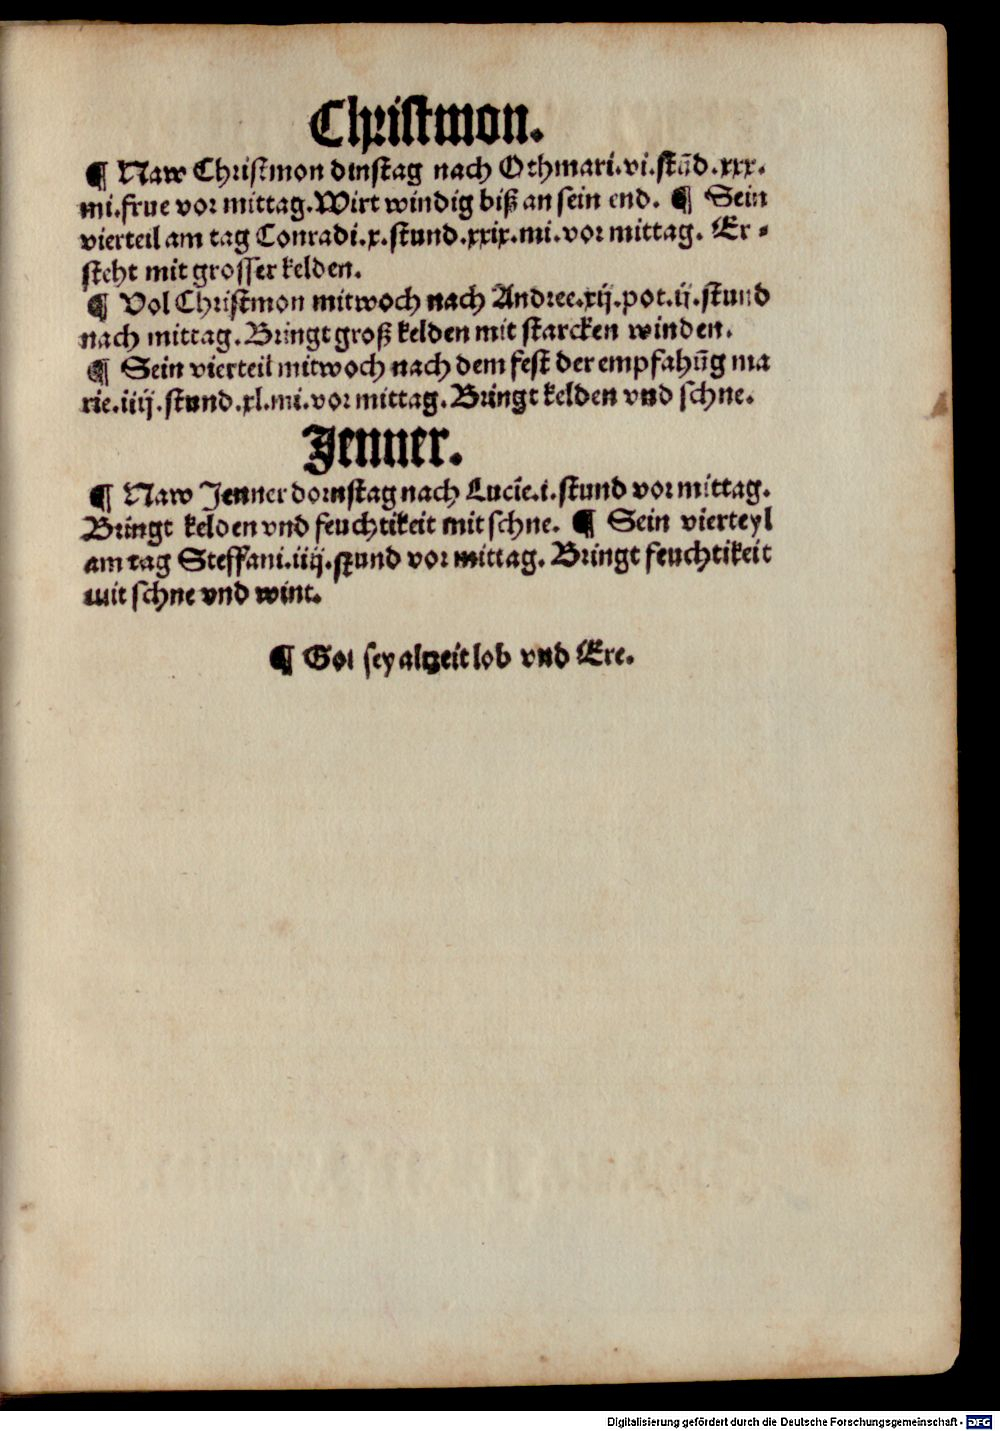 Christmon.
¶ Naw Christmon dinstag nach Othmari.vi.stūd.xxx.
mi.frue vor mittag.Wirt windig biß an sein end. ¶ Sein
vierteil am tag Conradi.x.stund.xxix.mi.vor mittag. Er-
steht mit grosser kelden.
¶ Vol Christmon mitwoch nach Andree.xij.pot.ij.stund
nach mittag.Bringt groß kelden mit starcken winden.
¶ Sein vierteil mitwoch nach dem fest der empfahūg ma
rie.iiij.stund.xl.mi.vor mittag.Bringt kelden vnd schne.
Jenner.
¶ Naw Jenner dornstag nach Lucie.i.stund vor mittag.
Bringt kelden vnd feuchtikeit mit schne. ¶ Sein vierteyl
am tag Steffani.iiij.stund vor mittag. Bringt feuchtikeit
mit schne vnd wint.
¶ Got sey altzeit lob vnd Ere.
Digitalisierung gefördert durch die Deutsche Forschungsgemeinschaft - DFG